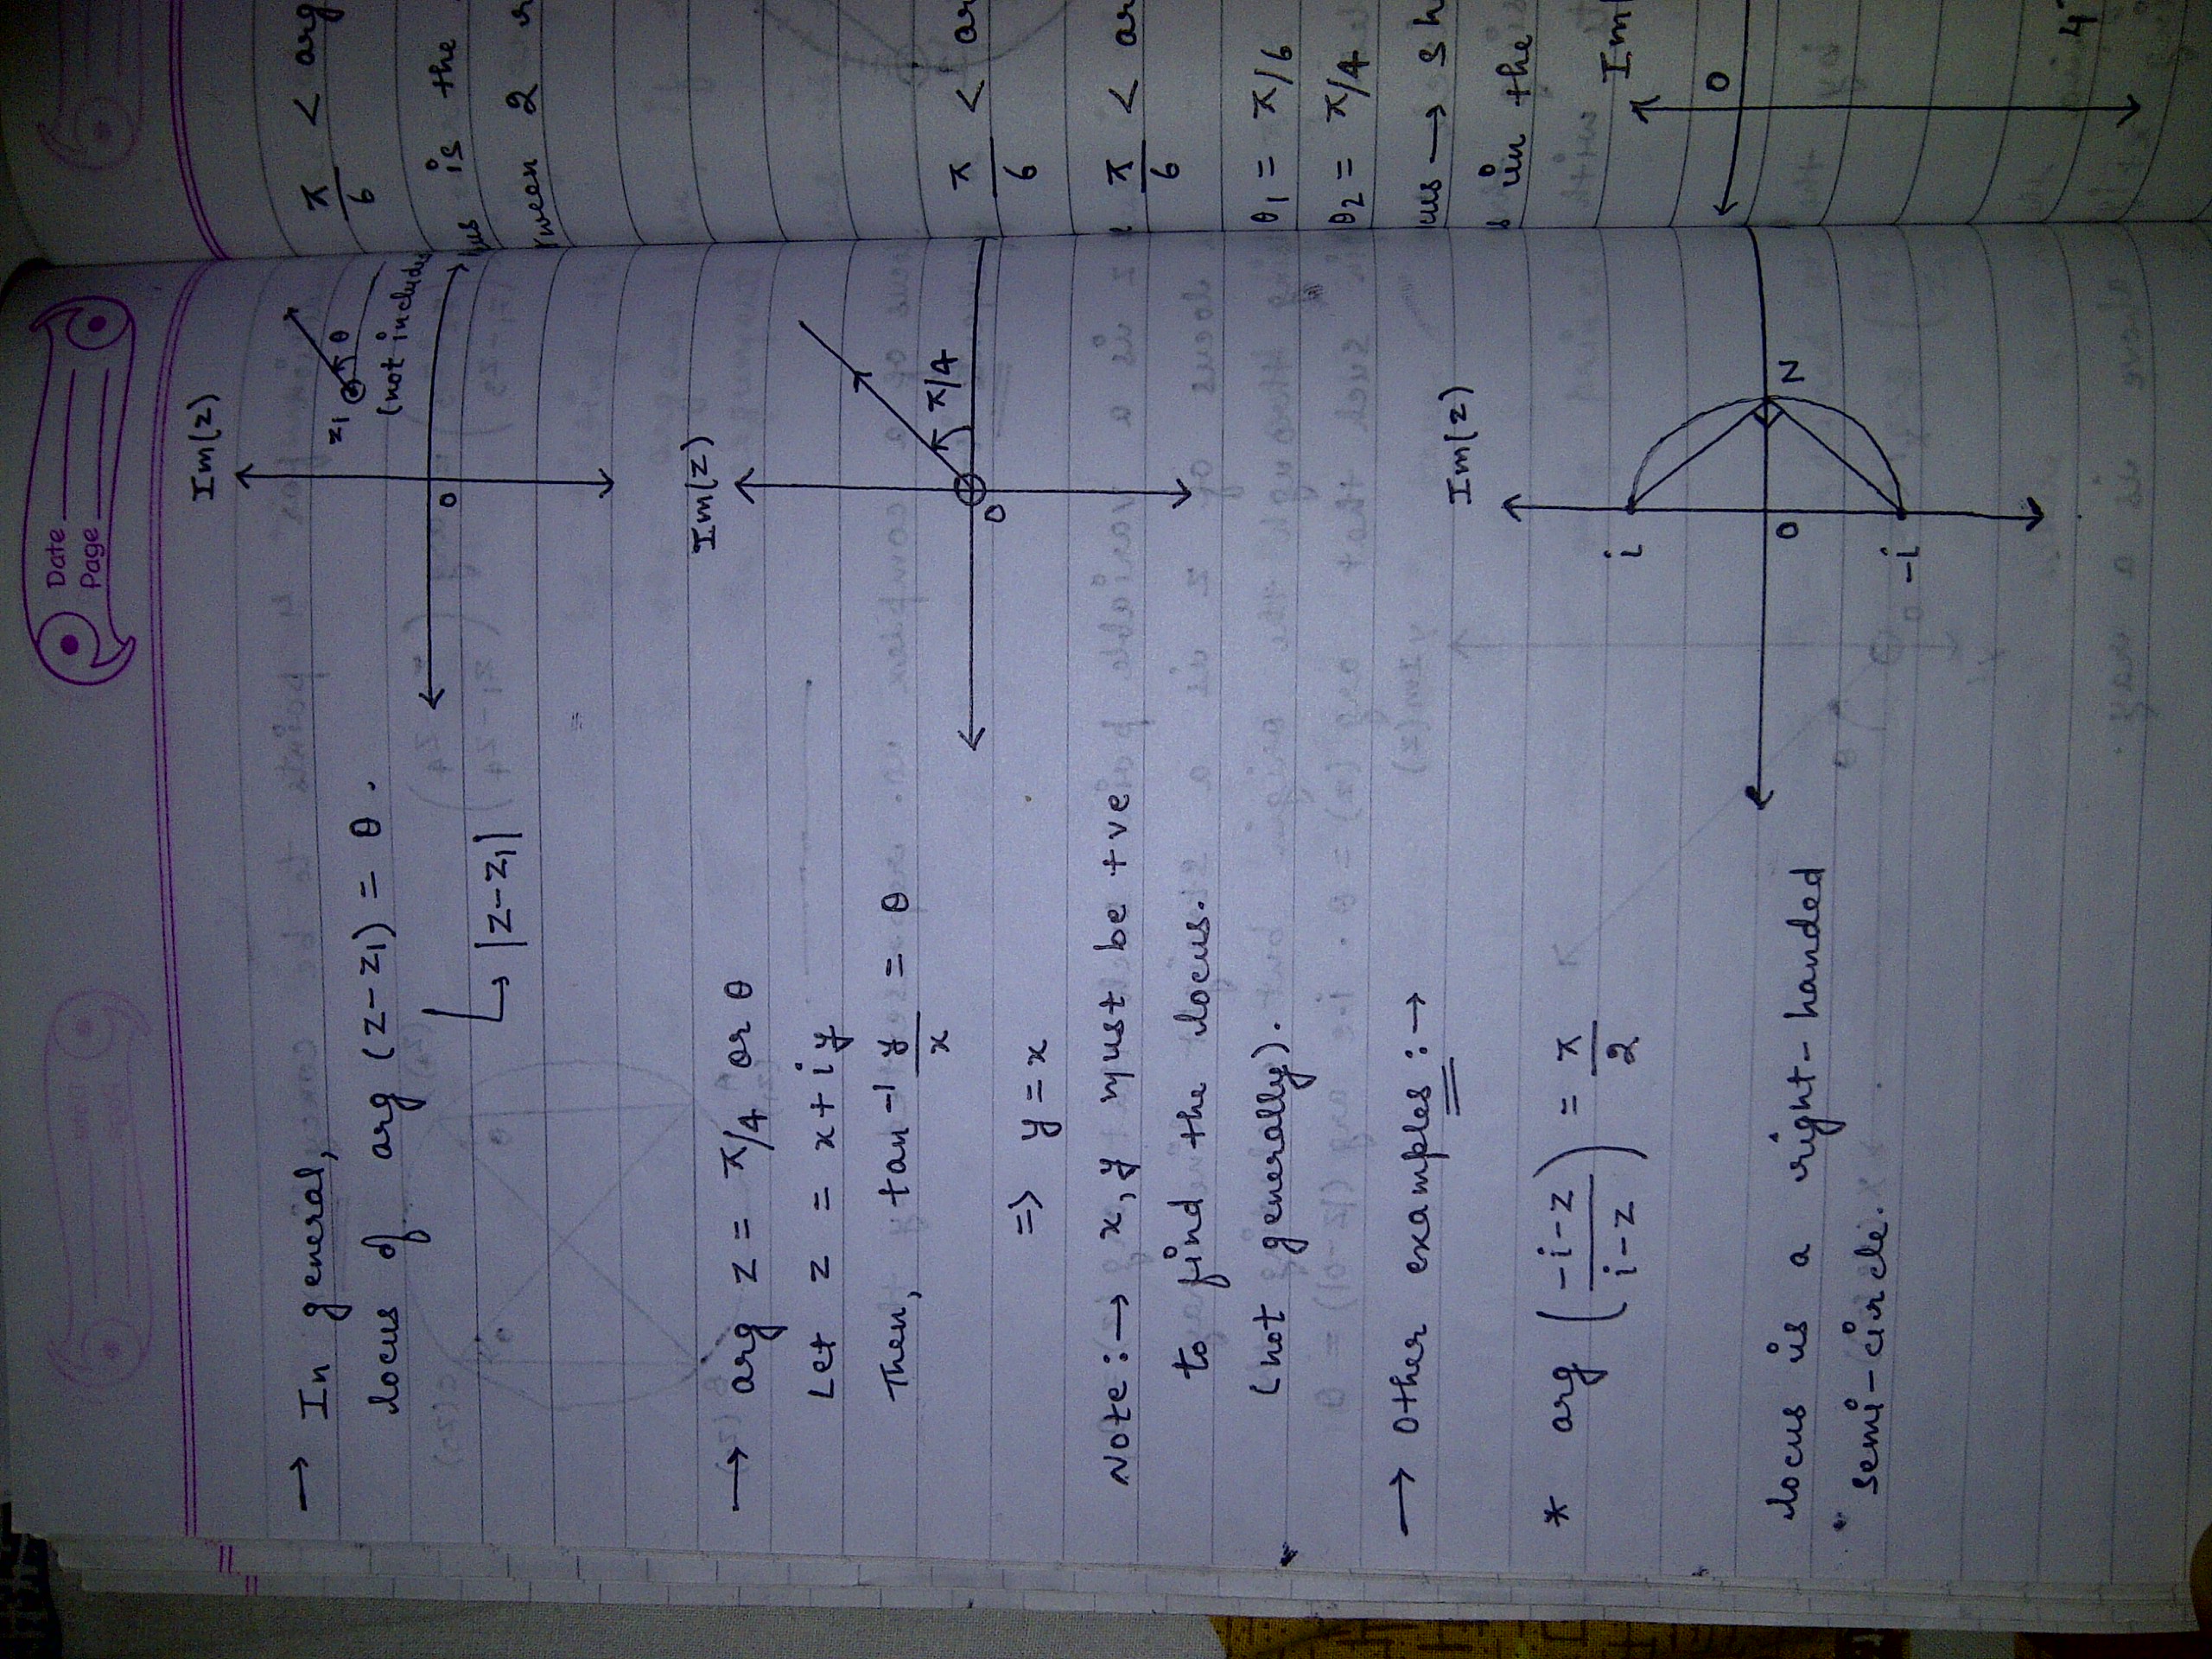 Date
Page
Im(z)
→ In general,
locus of arg (z-z₁) = θ.
↳ |z-z₁|
z₁ θ
0
→ arg z = π/4 or θ
Let z = x+iy
Then, tan⁻¹ y/x = θ
⇒ y = x
Note:→ x, y must be +ve
to find the locus.
(not generally).
Im(z)
π/4
0
→ Other examples:→
* arg ((-i-z)/(i-z)) = π/2
locus is a right-handed
semi-circle.
Im(z)
i
0 N
-i
π/6 < arg
is the
2
π/6 <
π/6 <
θ₁ = π/6
θ₂ = π/4
in the
0